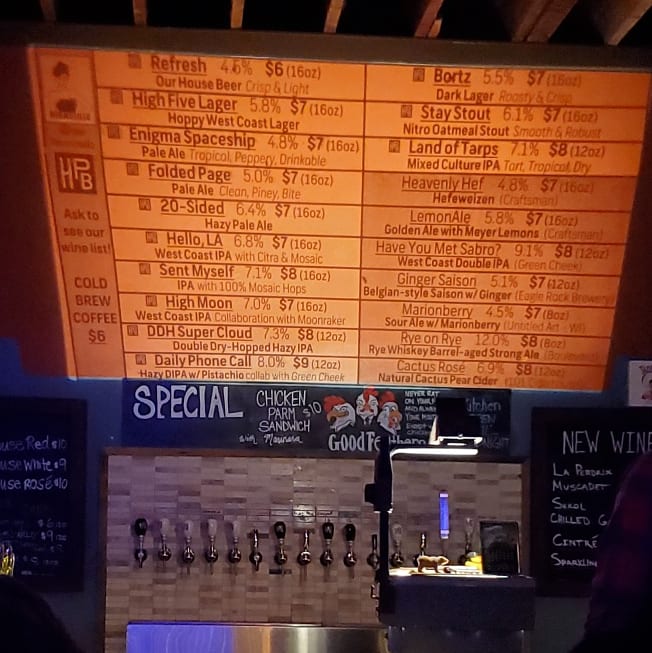 Refresh 4.6% $6 (16oz)
Our House Beer Crisp & Light
High Five Lager 5.8% $7 (16oz)
Hoppy West Coast Lager
Enigma Spaceship 4.8% $7 (16oz)
Pale Ale Tropical, Peppery, Drinkable
Folded Page 5.0% $7 (16oz)
Pale Ale Clean, Piney, Bite
20-Sided 6.4% $7 (16oz)
Hazy Pale Ale
Hello, LA 6.8% $7 (16oz)
West Coast IPA with Citra & Mosaic
Sent Myself 7.1% $8 (16oz)
IPA with 100% Mosaic Hops
High Moon 7.0% $7 (16oz)
West Coast IPA Collaboration with Moonraker
DDH Super Cloud 7.3% $8 (12oz)
Double Dry-Hopped Hazy IPA
Daily Phone Call 8.0% $9 (12oz)
Hazy DIPA w/ Pistachio collab with Green Cheek
Bortz 5.5% $7 (16oz)
Dark Lager Roasty & Crisp
Stay Stout 6.1% $7 (16oz)
Nitro Oatmeal Stout Smooth & Robust
Land of Tarps 7.1% $8 (12oz)
Mixed Culture IPA Tart, Tropical, Dry
Heavenly Hef 4.8% $7 (16oz)
Hefeweizen (Craftsman)
LemonAle 5.8% $7 (16oz)
Golden Ale with Meyer Lemons (Craftsman)
Have You Met Sabro? 9.1% $8 (12oz)
West Coast Double IPA (Green Cheek)
Ginger Saison 5.1% $7 (12oz)
Belgian-style Saison w/ Ginger (Eagle Rock Brewery)
Marionberry 4.5% $7 (8oz)
Sour Ale w/ Marionberry (Untitled Art - WI)
Rye on Rye 12.0% $8 (8oz)
Rye Whiskey Barrel-aged Strong Ale (Boulevard)
Cactus Rosé 6.9% $8 (12oz)
Natural Cactus Pear Cider
HPB
Ask to
see our
wine list!
COLD
BREW
COFFEE
$6
SPECIAL
CHICKEN
PARM $10
SANDWICH
with Marinara
NEVER EAT
ON YOUR
AND ALWAYS
GOOD
use Red $10
use White $9
use Rosé $10
NEW WINE
LA PERDRIX
MUSCADET
CHILLED
CINTRÉ
SPARKLIN